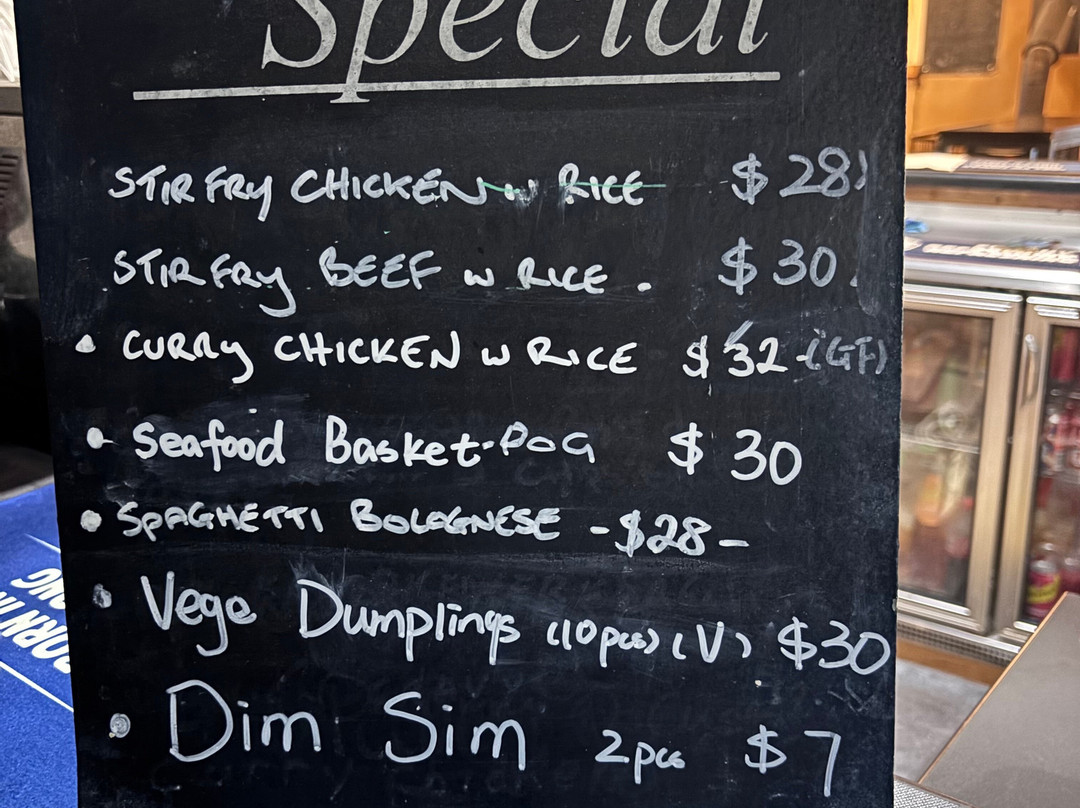 Special
STIR FRY CHICKEN w RICE $28
STIR FRY BEEF w RICE . $30.
• CURRY CHICKEN w RICE $32-(GF)
• Seafood Basket- $30
• SPAGHETTI BOLOGNESE -$28-
• Vege Dumplings (10pcs) (V) $30
• Dim Sim 2pcs $7
BORN IN